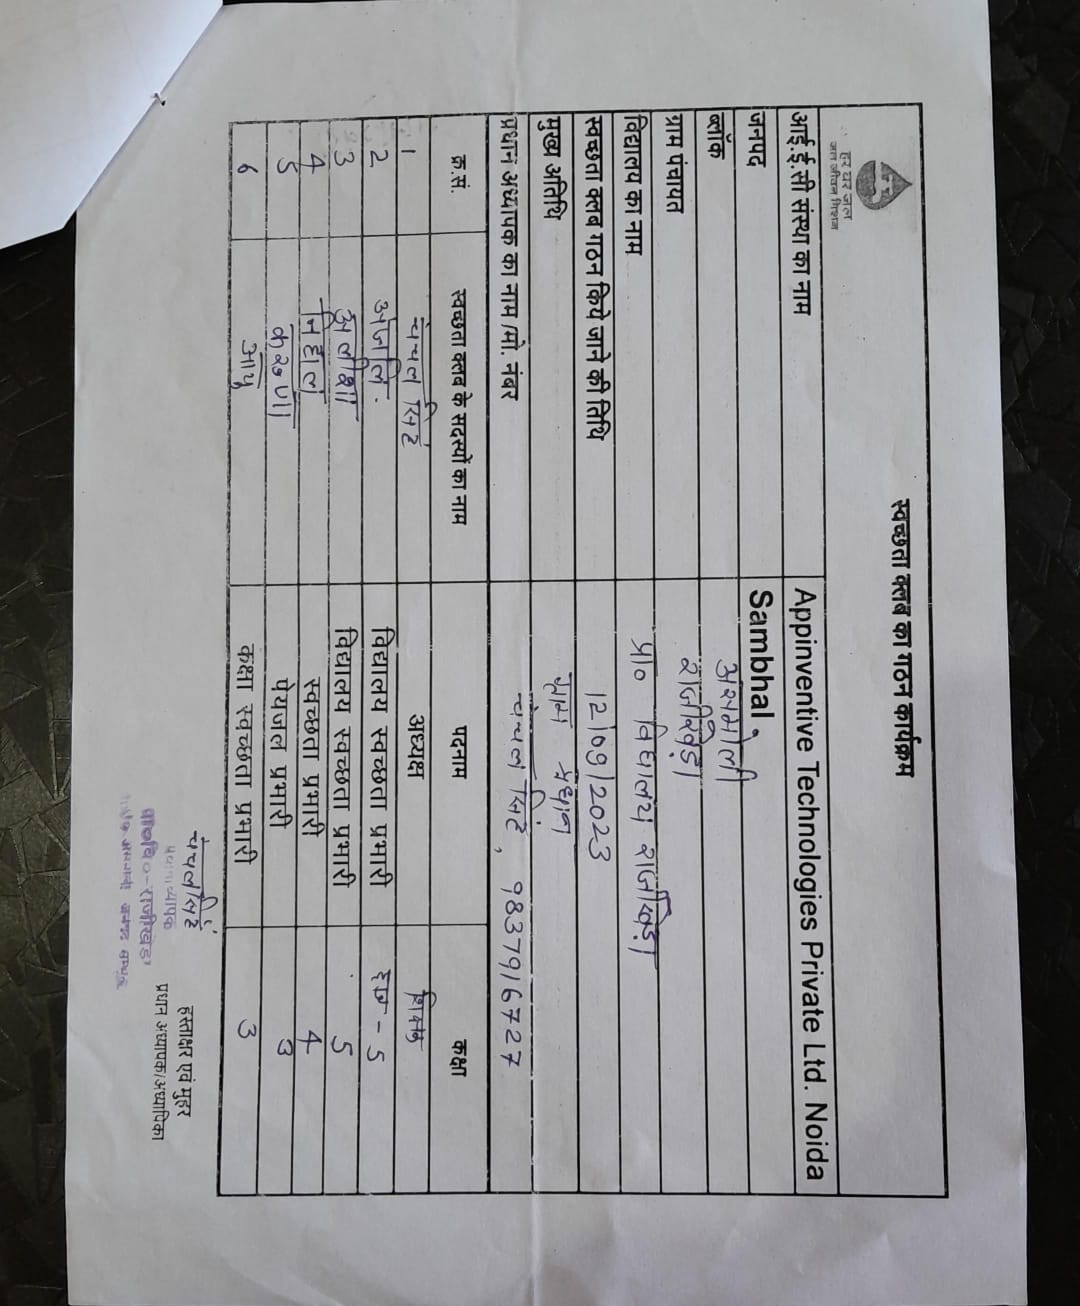 स्वच्छता क्लब का गठन कार्यक्रम
हर घर जल
जल जीवन मिशन
आई.ई.सी संस्था का नाम Appinventive Technologies Private Ltd. Noida
जनपद Sambhal
ब्लॉक असमोली
ग्राम पंचायत राजीखेड़ा
विद्यालय का नाम प्रा० विद्यालय राजीखेड़ा
स्वच्छता क्लब गठन किये जाने की तिथि 12/09/2023
मुख्य अतिथि ग्राम प्रधान
प्रधान अध्यापक का नाम /मो. नंबर चंचल सिंह, 9837916727
क्र.सं. स्वच्छता क्लब के सदस्यों का नाम पदनाम कक्षा
1 चंचल सिंह अध्यक्ष शिक्षक
2 अंजलि विद्यालय स्वच्छता प्रभारी - 5
3 अलीशा विद्यालय स्वच्छता प्रभारी 5
4 निहाल स्वच्छता प्रभारी 4
5 करुणा पेयजल प्रभारी 3
6 आयु कक्षा स्वच्छता प्रभारी 3
चंचल सिंह
हस्ताक्षर एवं मुहर
प्रधान अध्यापक/अध्यापिका